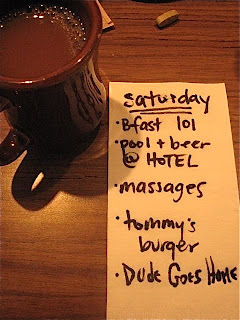 saturday
• Bfast 101
• pool + beer
@ HOTEL
• massages
• tommy's
burger
• DUDE GOES HOME